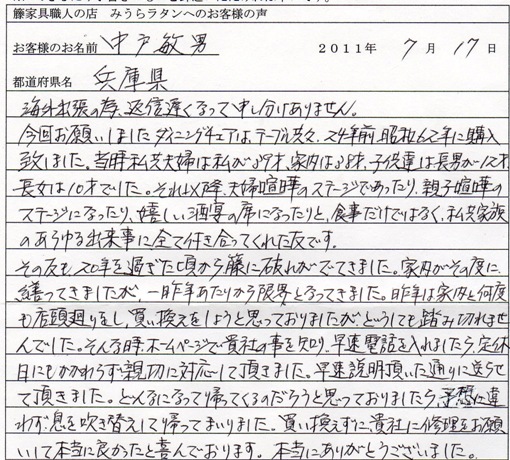 籐家具職人の店 みうらラタンへのお客様の声
お客様のお名前 中戸敏男 2011年 7月 17日
都道府県名 兵庫県
海外出張の為、返信遅くなって申し分けありません。
今回お願いしましたダイニングチェアは、テーブル共々、24年前、昭和62年に購入
致しました。当時私共夫婦は私が39才、家内は38才、子供達は長男が12才
長女は10才でした。それ以降、夫婦喧嘩のステージであったり、親子喧嘩の
ステージになったり、嬉しい酒宴の席になったりと、食事だけではなく、私共家族
のあらゆる出来事に全て付き合ってくれた友です。
その友も20年を過ぎた頃から藤に破れがでてきました。家内がその度に
繕ってきましたが、一昨年あたりから限界となってきました。昨年は家内と何度
も店頭廻りをし、買い換えをしようと思っておりましたがどうしても踏み切れませ
んでした。そんな時ホームページで貴社の事を知り、早速電話を入れましたら、定休
日にもかかわらず親切に対応して頂きました。早速説明頂いた通りに送らせ
て頂きました。どんなになって帰ってくるのだろうと思っておりましたら、予想に違
わず息を吹き替えして帰ってまいりました。買い換えずに貴社に修理をお願
いして本当に良かったと喜んでおります。本当にありがとうございました。